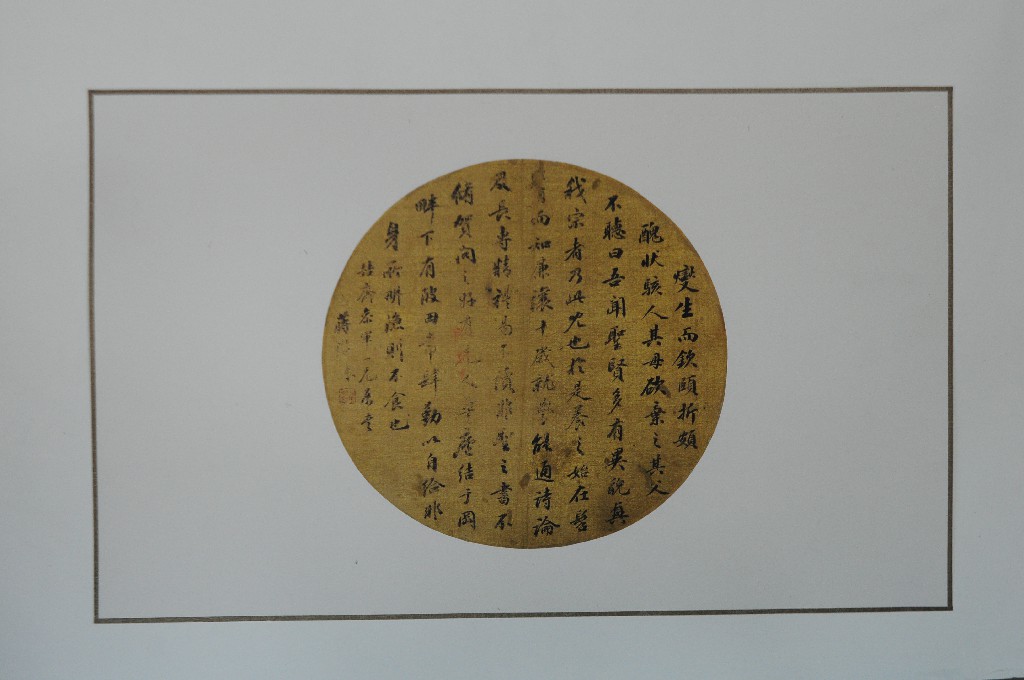 燮生而欽頤折頞
醜狀駭人其母欲棄之其父
不聽曰吾聞聖賢多有異貌興
我宗者乃此兒也於是養之始在髫
而知廉讓十歲就學能通詩論
及長專精禮易不讀非聖之書不
脩賀問之好有先人草廬結于岡
畔下有陂田常肆勤以自給非
身所耕漁則不食也
蔣